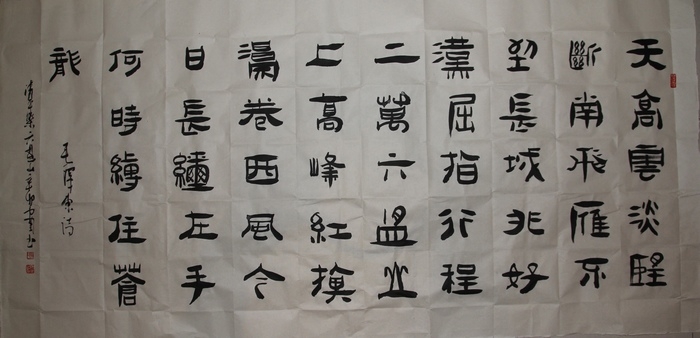 天高雲淡朢
斷南飛雁不
到長城非好
漢屈指行程
二萬六盤山
上高峰紅旗
漫卷西風今
日長纓在手
何時縛住蒼
龍
毛澤東詩
清平樂六盤山辛卯